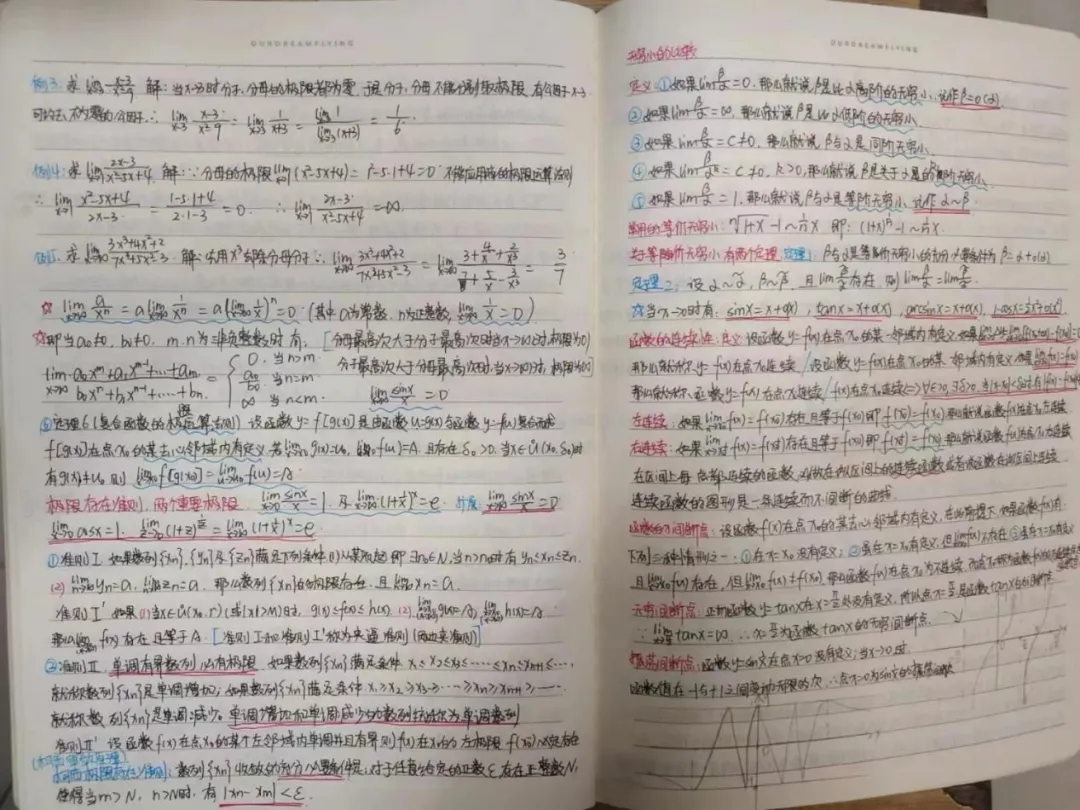 OURDREAMFLYING
例3: 求 lim x→3 x-3/x²-9 解: 当x→3时分子,分母的极限都为零. 于是分子,分母不能分别取极限. 有公因子x-3
可约去不为零的公因子. ∴ lim x→3 x-3/x²-9 = lim x→3 1/x+3 = lim x→3 1/lim x→3 (x+3) = 1/6
例4: 求 lim x→1 2x-3/x²-5x+4. 解: ∵ 分母的极限 lim x→1 (x²-5x+4) = 1²-5·1+4=0 不能应用商的极限运算法则
∴ lim x→1 x²-5x+4/2x-3 = 1-5·1+4/2·1-3 = 0. ∴ lim x→1 2x-3/x²-5x+4 = ∞.
例5. 求 lim x→∞ 3x³+4x²+2/7x³+5x²-3. 解: 先用x³去除分母分子: lim x→∞ 3x³+4x²+2/7x³+5x²-3 = lim x→∞ 3+4/x+2/x³/7+5/x-3/x³ = 3/7
☆ lim x→∞ a/xⁿ = a lim x→∞ 1/xⁿ = a(lim x→∞ 1/x)ⁿ = 0. (其中a为常数, n为正整数, lim x→∞ 1/x = 0)
☆即当a₀≠0, b₀≠0, m.n为非负整数时有, [分母最高次大于分子最高次时当x→∞时极限为0
lim x→∞ a₀xᵐ+a₁xᵐ⁻¹+……+am/b₀xⁿ+b₁xⁿ⁻¹+……+bn = { 0, 当n>m. a₀/b₀ 当n=m ∞ 当n<m. 分子最高次大于分母最高次时,当x→∞时,极限为∞]
lim x→∞ sinx/x = 0
⑥定理6 (复合函数的极限运算法则) 设函数y=f[g(x)]是由函数u=g(x)与函数y=f(u)复合而成
f[g(x)]在点x₀的某去心邻域内有定义. 若lim x→x₀ g(x)=u₀, lim u→u₀ f(u)=A 且存在δ₀>0, 当x∈Ů(x₀,δ₀)时
有g(x)≠u₀ 则 lim x→x₀ f[g(x)] = lim u→u₀ f(u)=A.
极限存在准则, 两个重要极限. lim x→0 sinx/x = 1 及 lim x→∞ (1+1/x)ˣ = e. 外展: lim x→∞ sinx/x = 0
lim x→0 cosx=1. lim z→0 (1+z)^1/z = lim x→∞ (1+1/x)ˣ = e.
①准则I 如果数列{xn}, {yn}及{zn}满足下列条件 (1)从某项起 即∃n₀∈N, 当n>n₀时有 yn≤xn≤zn.
(2) lim n→∞ yn=a, lim n→∞ zn=a, 那么数列{xn}的极限存在, 且 lim n→∞ xn=a.
准则I' 如果 (1)当x∈Ů(x₀,r) (或|x|>M)时, g(x)≤f(x)≤h(x). (2) lim g(x)=A, lim h(x)=A.
那么lim f(x)存在且等于A. [准则I和准则I'称为夹逼准则 (两边夹准则)]
②准则II 单调有界数列必有极限. 如果数列{xn}满足条件 x₁≤x₂≤x₃≤……≤xn≤xn+1≤…,
就称数列{xn}是单调增加; 如果数列{xn}满足条件 x₁≥x₂≥x₃≥……≥xn≥xn+1≥……
就称数列{xn}是单调减少. 单调增加和单调减少的数列统称为单调数列
准则II' 设函数f(x)在点x₀的某个左邻域内单调并且有界则f(x)在x₀的左极限 f(x₀⁻)必定存在
[柯西审敛原理]
柯西极限存在准则: 数列{xn}收敛的充分必要条件是: 对于任意给定的正数ε 存在正整数N,
使得当m>N, n>N时, 有 |xn-xm|<ε.
OURDREAMFLYING
无穷小的比较
定义: ①如果lim β/α=0, 那么就说β是比α高阶的无穷小, 记作β=o(α)
②如果lim β/α=∞, 那么就说β是比α低阶的无穷小
③如果lim β/α=C≠0, 那么就说β与α是同阶无穷小.
④如果lim β/αᵏ=C≠0, k>0, 那么就说β是关于α的k阶无穷小.
⑤如果lim β/α=1, 那么就说β与α是等价无穷小, 记作α~β.
常用的等价无穷小: ⁿ√1+x -1 ~ 1/n x 即: (1+x)^1/n -1 ~ 1/n x
关于等价无穷小有两个定理 定理1: β与α是等价无穷小的充分必要条件为β=α+o(α)
定理2: 设 α~α̃, β~β̃, 且lim β̃/α̃存在, 则lim β/α=lim β̃/α̃.
☆当x→0时有: sinx=x+o(x), tanx=x+o(x), arcsinx=x+o(x), 1-cosx=½x²+o(x²)
函数的连续性: 定义: 设函数y=f(x)在点x₀的某一邻域内有定义, 如果
那么就称函数y=f(x)在点x₀连续/设函数y=f(x)在点x₀的某一邻域内有定义 如果lim f(x)=f(x₀)
那么就称函数y=f(x)在点x₀连续/f(x)在点x₀连续⇔∀ε>0, ∃δ>0, 当|x-x₀|<δ时有|f(x)-f(x₀)|<ε
左连续: 如果 lim f(x)=f(x₀⁻)存在且等于f(x₀)即f(x₀⁻)=f(x₀)那么就说函数f(x)在点x₀左连续.
右连续: 如果 lim f(x)=f(x₀⁺)存在且等于f(x₀)即f(x₀⁺)=f(x₀)那么就说函数f(x)在点x₀右连续
在区间上每一点都连续的函数, 叫做在该区间上的连续函数或者说函数在该区间上连续.
连续函数的图形是一条连续而不间断的曲线.
函数的间断点: 设函数f(x)在点x₀的某去心邻域内有定义, 在此前提下, 如果函数f(x)有
下列三种情形之一: ①在x=x₀没有定义; ②虽在x=x₀有定义, 但lim f(x)不存在 ③虽在x=x₀有定义
且lim f(x)存在, 但lim f(x)≠f(x₀), 那么函数f(x)在点x₀为不连续
无穷间断点: 正切函数y=tanx在x=π/2处没有定义, 所以点x=π/2是函数tanx的间断点
∵ lim x→π/2 tanx=∞. ∴x=π/2为函数tanx的无穷间断点
振荡间断点: 函数y=sin1/x在点x=0没有定义; 当x→0时.
函数值在-1与+1之间变动无限多次 ∴点x=0为sin1/x的振荡间断点